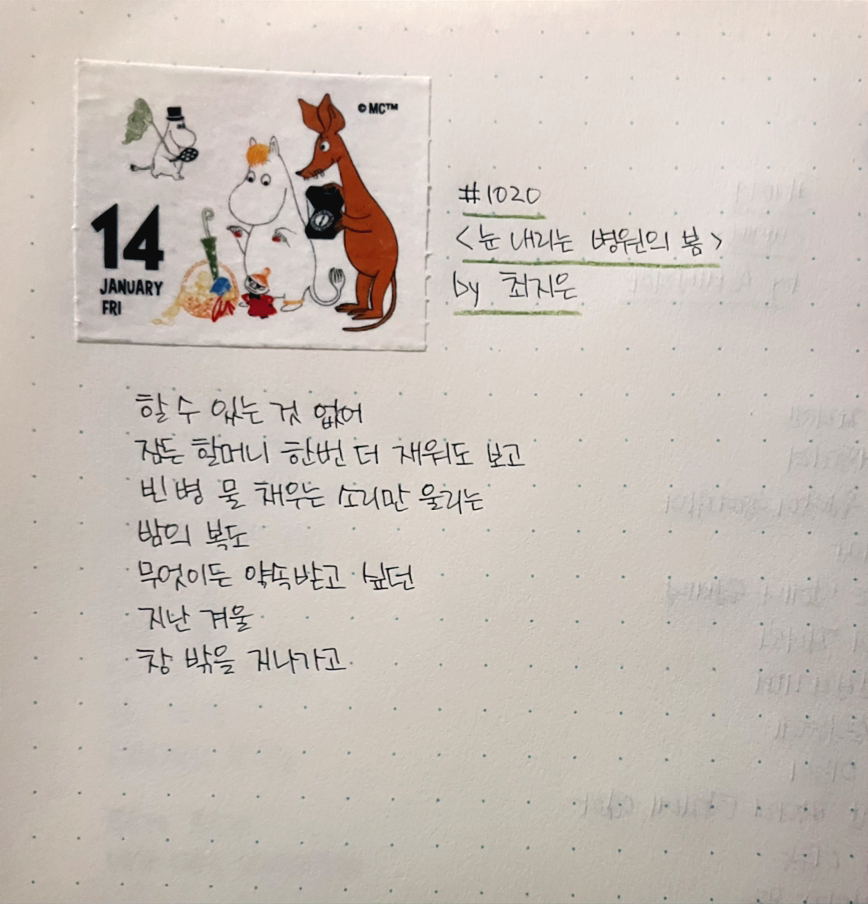 ©MC™
14
JANUARY
FRI
#1020
<눈 내리는 병원의 봄>
by 최지은
할 수 있는 것 없어
잠든 할머니 한번 더 재워도 보고
빈 병 물 채우는 소리만 울리는
밤의 복도
무엇이든 약속받고 싶던
지난 겨울
창 밖을 지나가고